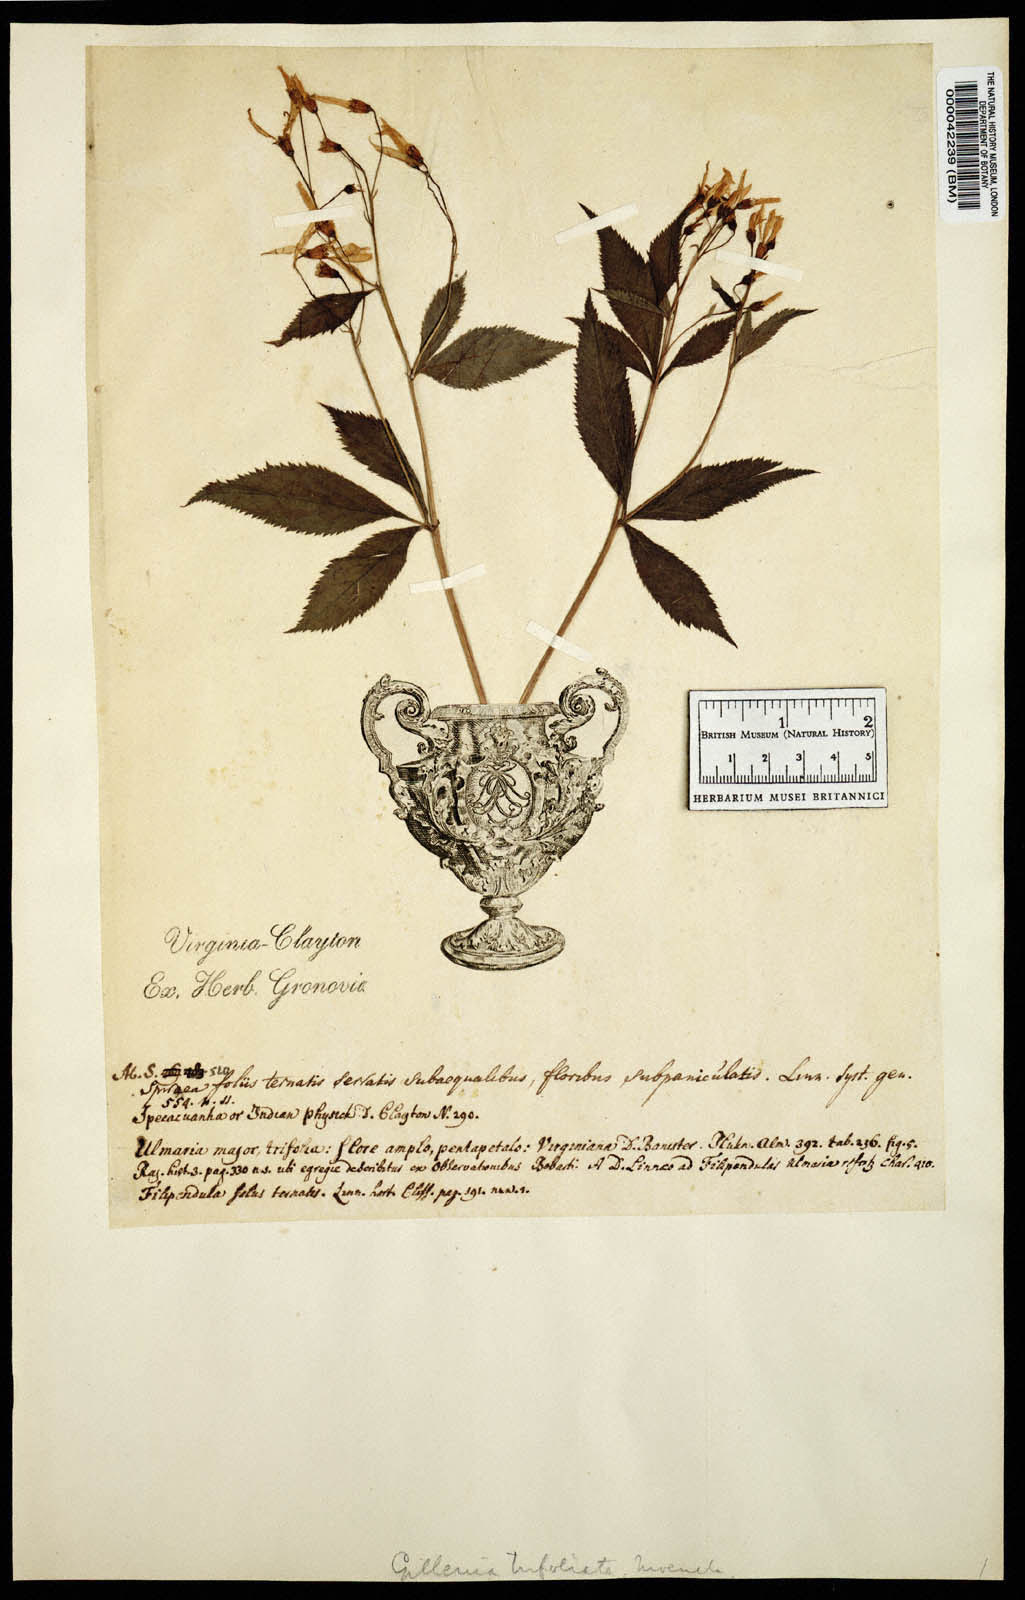 THE NATURAL HISTORY MUSEUM, LONDON
DEPARTMENT OF BOTANY
000042239 (BM)
1 2
BRITISH MUSEUM (NATURAL HISTORY)
1 2 3 4 5
HERBARIUM MUSEI BRITANNICI
Virginia-Clayton
Ex. Herb. Gronovii
520
Spiraea foliis ternatis serratis subaequalibus, floribus subpaniculatis. Linn. Syst. gen.
554. n. 11.
Ipecacuanha or Indian physick D. Clayton N. 290.
Ulmaria major, trifolia: flore amplo, pentapetalo: Virginiana D. Banister. Plukn. Alm. 392. tab. 236. fig. 5.
Raj. hist. 3. pag. 330 n. 2. ubi egregie describitur ex Observationibus Bobarti: A D. Linneo ad Filipendulas Char. 410.
Filipendula foliis ternatis. Linn. hort. Cliff. pag. 191. num. 3.
Gillenia trifoliata, Moench.
1